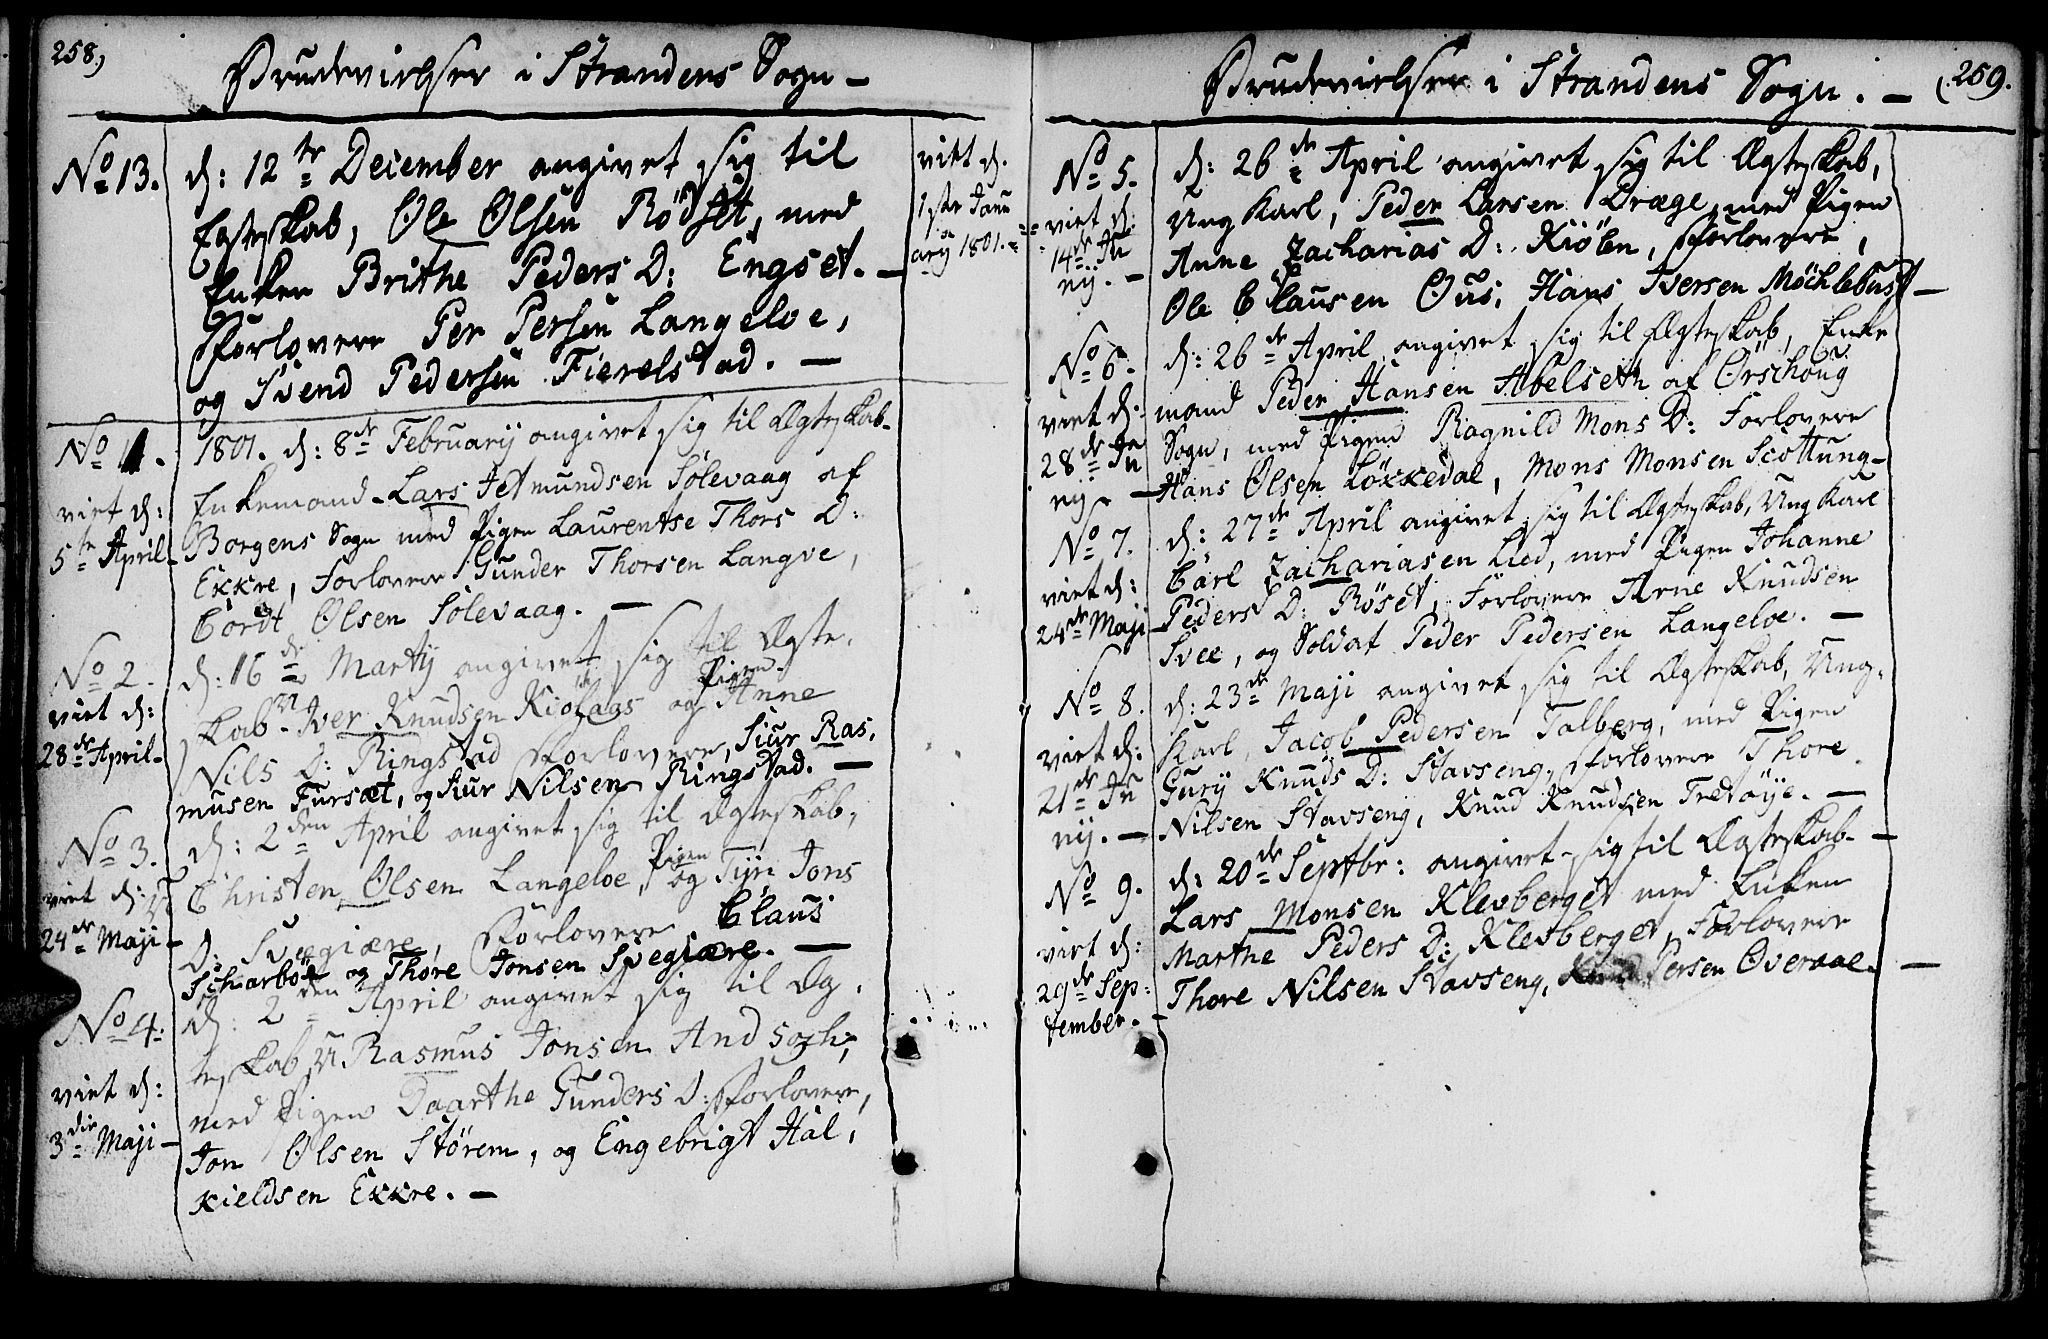 258)
Brudevielser i Strandens Sogn –
No 13.
d: 12te December angivet sig til
Egteskab, Ole Olsen Rödset, med
Enken Brithe Peders D: Engset. –
Forlovere Per Persen Langeloe,
og Svend Pedersen Fierelstad. –
vikt d.
1ste Janu
ary 1801.
No 1.
viet d:
5te April
1801. d: 8de February angivet sig til Ægteskab
Enkemand Lars Jetmundsen Sölevaag af
Borgens Sogn med Pigen Laurentse Thors D:
Ekkre, Forlovere Gunder Thorsen Langve,
Cordt Olsen Sölevaag. –
No 2.
viet d:
28de April
d: 16de Martij angivet sig til Ægte-
skab Iver Knudsen Kiölaas og Pigen Anne
Nils D: Ringstad Forlovere, Siur Ras-
musen Fursæt, og Siur Nilsen Ringstad. –
No 3.
viet d:
24de Maji –
d: 2den April angivet sig til Ægteskab,
Christen Olsen Langeloe, og Pigen Tÿri Jons
D: Svegiære, Forlovere Claus
Scharbö og Thore Jonsen Svegiære. –
No 4.
viet d:
3die Maji –
d: 2den April angivet sig til Æg-
teskab, U. Rasmus Jonsen And
med Pigen Daarthe Gunders D: Forlovere,
Jon Olsen Störem, og Engebrigt Hal-
kieldsen Ekkre. –
Brudevielser i Strandens Sogn. –
(259.
No 5.
viet d:
14de Ju
nij. –
d: 26de April angivet sig til Ægteskab,
Ung Karl, Peder Larsen Dræge, med Pigen
Anne Zacharias D: Kiölen, Forlovere,
Ole Clausen Ous, Hans Iversen Möchlebust –
No 6.
viet d:
28de Ju
nij –
d: 26de April angivet sig til Ægteskab, Enke
mand Peder Hansen Abelseth af Örschoug
Sogn, med Pigen Ragnild Mons D: Forlovere
Hans Olsen Lökkedal, Mons Monsen Scottung –
No 7.
viet d:
24de Maji –
d: 27de April angivet sig til Ægteskab, Ung Karl
Carl Zachariasen Lied, med Pigen Johanne
Peders D: Röset, Forlovere Arne Knudsen
Svee, og Soldat Peder Pedersen Langeloe. –
No 8.
viet d:
21de Ju
nij. –
d: 23de Maji angivet sig til Ægteskab, Ung-
Karl, Jacob Pedersen Talberg, med Pigen
Gury Knuds D: Stavseng, Forlovere Thore
Nilsen Stavseng, Knud Knudsen Tretöÿe. –
No 9.
viet d:
29de Sep-
tember. –
d: 20de Septbr: angivet sig til Ægteskab –
Lars Monsen Klevberget med Enken
Marthe Peders D: Klevberget, Forlovere
Thore Nilsen Stavseng, Knud Persen Överaae. –